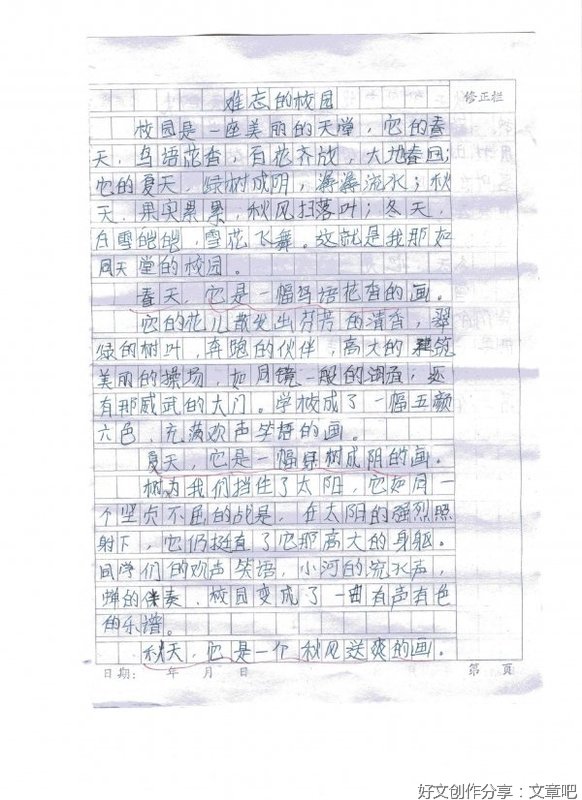 难忘的校园
修正栏
校园是一座美丽的天堂，它的春
天，鸟语花香，百花齐放，大地春回；
它的夏天，绿树成阴，潺潺流水；秋
天，果实累累，秋风扫落叶；冬天，
白雪皑皑，雪花飞舞。这就是我那如
同天堂的校园。
春天，它是一幅鸟语花香的画。
它的花儿散发出芬芳的清香，翠
绿的树叶，奔跑的伙伴，高大的建筑
美丽的操场，如同镜一般的湖面；还
有那威武的大门。学校成了一幅五颜
六色，充满欢声笑语的画。
夏天，它是一幅绿树成阴的画。
树为我们挡住了太阳，它如同一
个坚贞不屈的战是，在太阳的强烈照
射下，它仍挺直了它那高大的身躯。
同学们的欢声笑语，小河的流水声，
蝉的伴奏，校园变成了一曲有声有色
的乐谱。
秋天，它是一个秋风送爽的画。
日期： 年 月 日
第 页
好文创作分享：文章吧